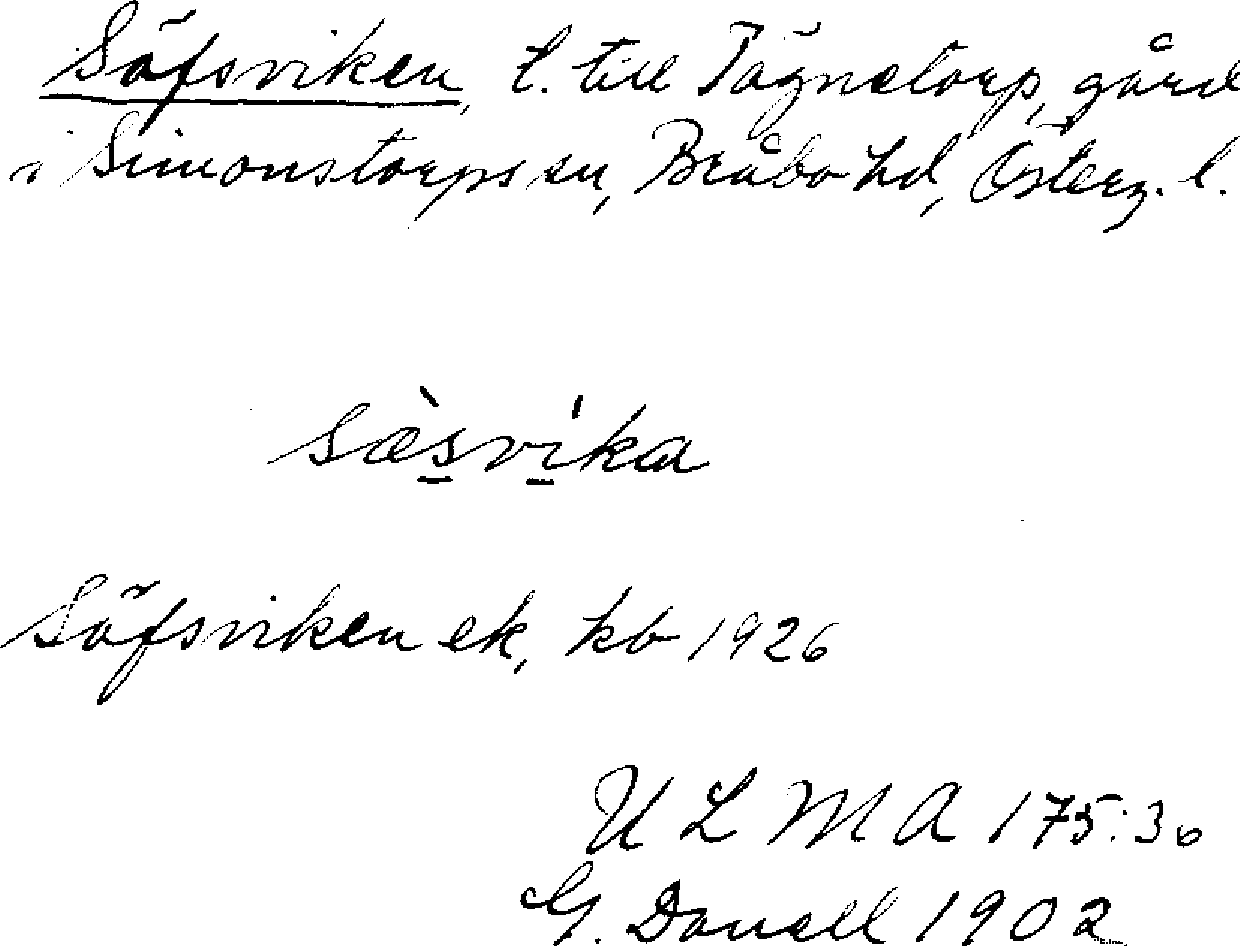 Säfsviken, t. till Tägnetorp, gård
i Simonstorps sn, Bråbo hd, Österg. l.
sæ̀svíka
Säfsviken ek, kb 1926
ULMA 175:30
G. Danell 1902